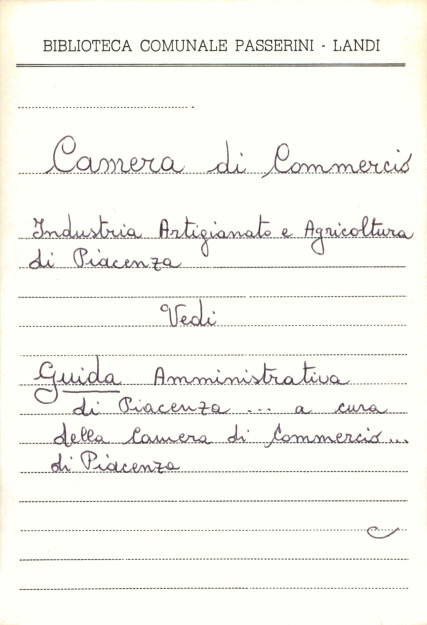 BIBLIOTECA COMUNALE PASSERINI - LANDI
Camera di Commercio
Industria Artigianato e Agricoltura
di Piacenza
Vedi
Guida Amministrativa
di Piacenza ... a cura
della Camera di Commercio ...
di Piacenza